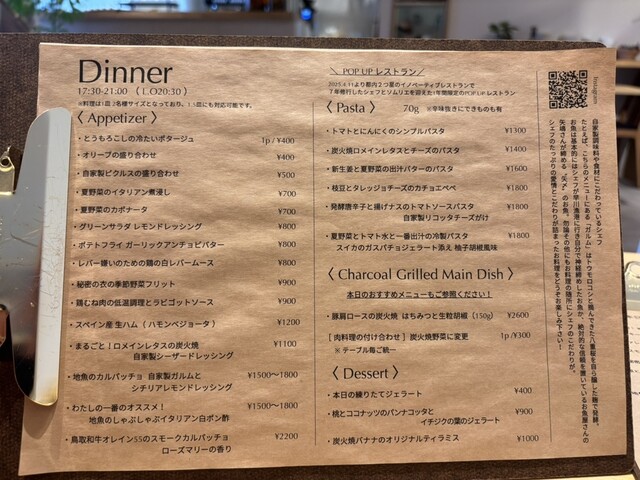 Dinner
17:30-21:00 （L.O20:30）
※料理は1皿2名様サイズとなっており、1.5皿にも対応可能です。
〈 Appetizer 〉
・とうもろこしの冷たいポタージュ 1p / ¥400
・オリーブの盛り合わせ ¥400
・自家製ピクルスの盛り合せ ¥500
・夏野菜のイタリアン煮浸し ¥700
・夏野菜のカポナータ ¥700
・グリーンサラダ レモンドレッシング ¥800
・ポテトフライ ガーリックアンチョビバター ¥800
・レバー嫌いのための鶏の白レバームース ¥800
・秘密の衣の季節野菜フリット ¥900
・鶏むね肉の低温調理とラビゴットソース ¥900
・スペイン産 生ハム（ ハモンベジョータ ） ¥1200
・まるごと！ロメインレタスの炭火焼 ¥1100
自家製シーザードレッシング
・地魚のカルパッチョ 自家製ガルムと ¥1500〜1800
シチリアレモンドレッシング
・わたしの一番のオススメ！ ¥1500〜1800
地魚のしゃぶしゃぶイタリアン白ポン酢
・鳥取和牛オレイン55のスモークカルパッチョ ¥2200
ローズマリーの香り
＼ POP UP レストラン／
2025.4.11より都内2つ星のイノベーティブレストランで
7年修行したシェフとソムリエを迎えた1年間限定のPOP UPレストラン
〈 Pasta 〉 70g ※辛味抜きにできものも有
・トマトとにんにくのシンプルパスタ ¥1300
・炭火焼ロメインレタスとチーズのパスタ ¥1400
・新生姜と夏野菜の出汁バターのパスタ ¥1600
・枝豆とタレッジョチーズのカチョエペペ ¥1800
・発酵唐辛子と揚げナスのトマトソースパスタ ¥1800
自家製リコッタチーズがけ
・夏野菜とトマト水と一番出汁の冷製パスタ ¥1800
スイカのガスパチョジェラート添え 柚子胡椒風味
〈 Charcoal Grilled Main Dish 〉
本日のおすすめメニューもご参照ください！
・豚肩ロースの炭火焼 はちみつと生粒胡椒（150g） ¥2600
[ 肉料理の付け合わせ ] 炭火焼野菜に変更 1p /¥300
※ テーブル毎ご統一
〈 Dessert 〉
・本日の練りたてジェラート ¥400
・桃とココナッツのパンナコッタと ¥900
イチジクの葉のジェラート
・炭火焼バナナのオリジナルティラミス ¥1000
Instagram
自家製調味料や食材にこだわっているシェフ
たとえば、こちらのメニューにある、"ガルム"はトウモロコシと摘んできた八重桜を自ら醸した麹で発酵。
お魚は基本的にはシェフが早川漁港に行き自分で神経締めしたお魚か、絶対的な信頼を置いているお魚屋さんの
矢嶋さんが締める"矢〆"のお魚。勿論その他にもお料理の随所にシェフのこだわりが。
シェフのたっぷりの愛情とこだわりが詰まったお料理をどうぞお楽しみ下さい！